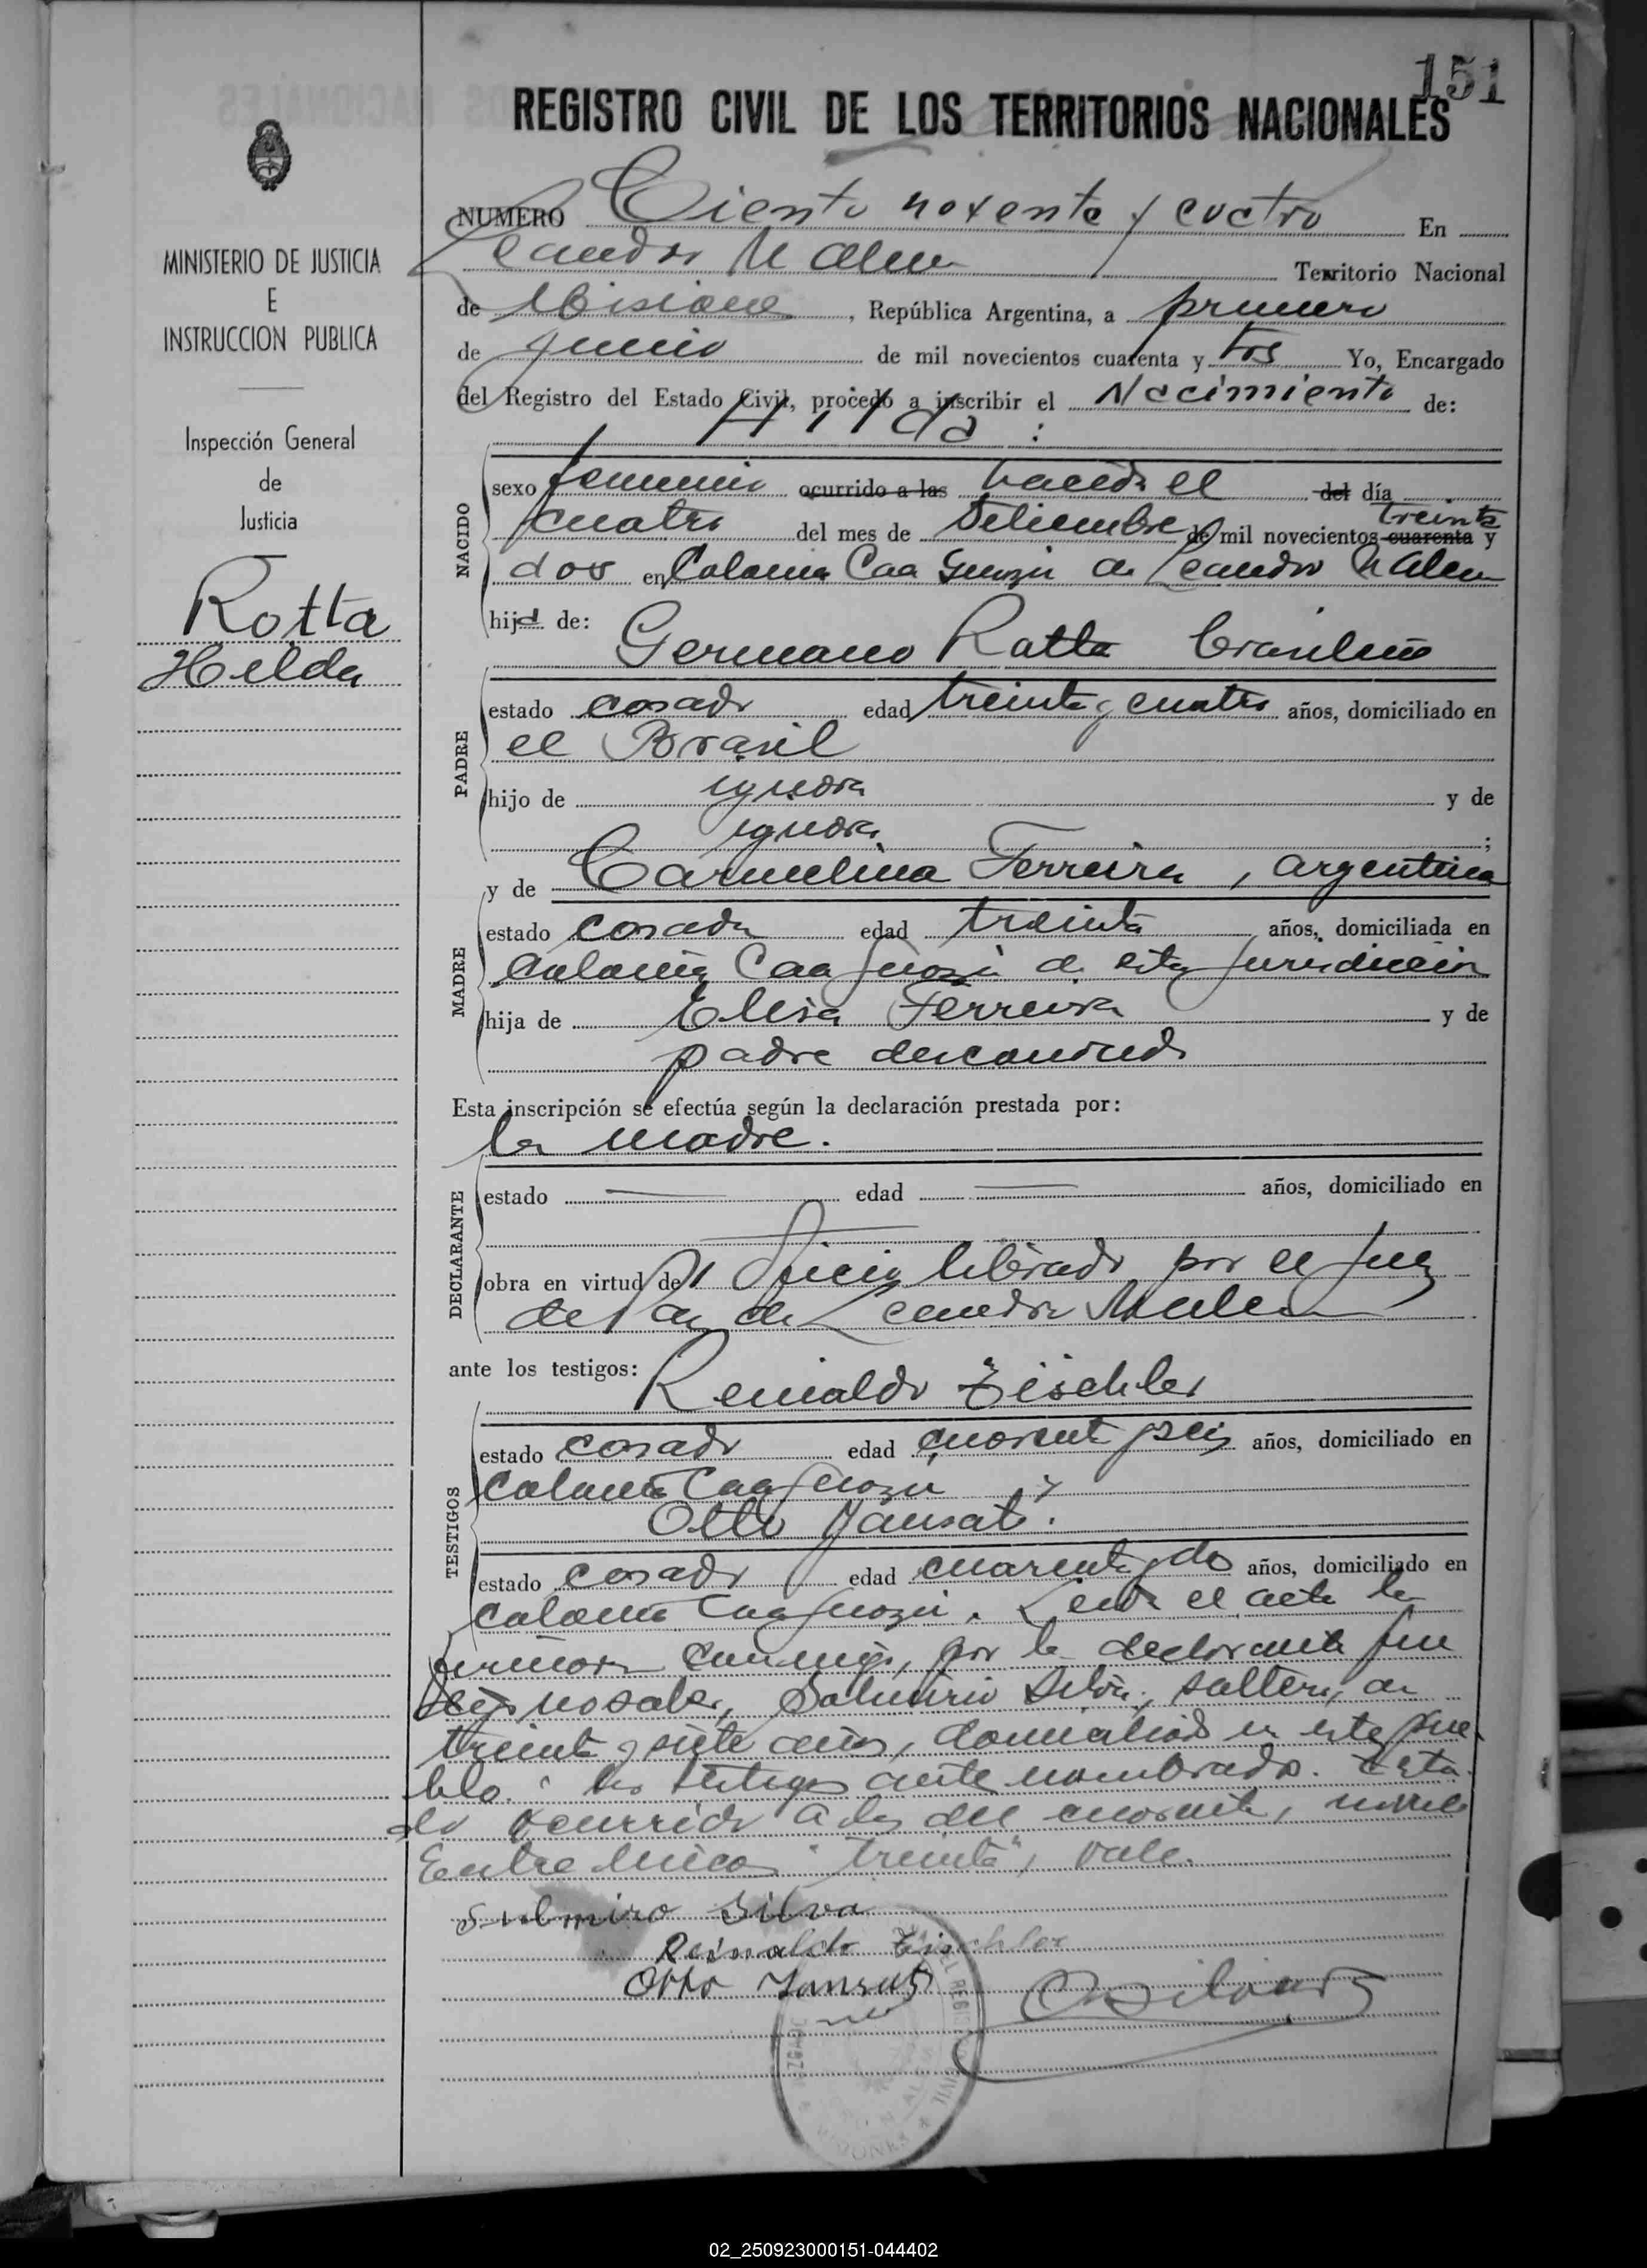 151
REGISTRO CIVIL DE LOS TERRITORIOS NACIONALES
MINISTERIO DE JUSTICIA
E
INSTRUCCION PUBLICA
Inspección General
de
Justicia
Rotta
Hilda
NUMERO Ciento noventa y cuatro En
Leandro N Alem Territorio Nacional
de Misiones, República Argentina, a primero
de junio de mil novecientos cuarenta y tres Yo, Encargado
del Registro del Estado Civil, procedo a inscribir el Nacimiento de:
Hilda :
NACIDO
sexo femenino ocurrido a las nacida el del día
treinta
cuatro del mes de Setiembre de mil novecientos cuarenta y
dos en Colonia Caa Guazú de Leandro N Alem
hija de:
Germano Rotta brasileño
PADRE
estado casado edad treinta y cuatro años, domiciliado en
el Brasil
hijo de ignora y de
ignora ;
y de Carmelina Ferreira, argentina
MADRE
estado casada edad treinta años, domiciliada en
Colonia Caa Guazú de esta jurisdicción
hija de Elisa Ferreira y de
padre desconocido
Esta inscripción se efectúa según la declaración prestada por:
la madre.
DECLARANTE
estado edad años, domiciliado en
obra en virtud del Oficio librado por el Juez
de Paz de Leandro N Alem
ante los testigos:
Reinaldo Zischler
TESTIGOS
estado casado edad cuarenta y seis años, domiciliado en
Colonia Caa Guazú y
Otto
estado casado edad cuarenta y dos años, domiciliado en
Colonia Caa Guazú. Leida el acta la
firmaron conmigo, por la declarante que
dijo no saber, Silva, soltero, de
treinta y siete años, domiciliado en este pue-
blo. los testigos ante nombrados.
ocurrido a las del cuarenta,
Entre lineas "treinta", vale.
Silva
Reinaldo Zischler
Otto
02_250923000151-044402